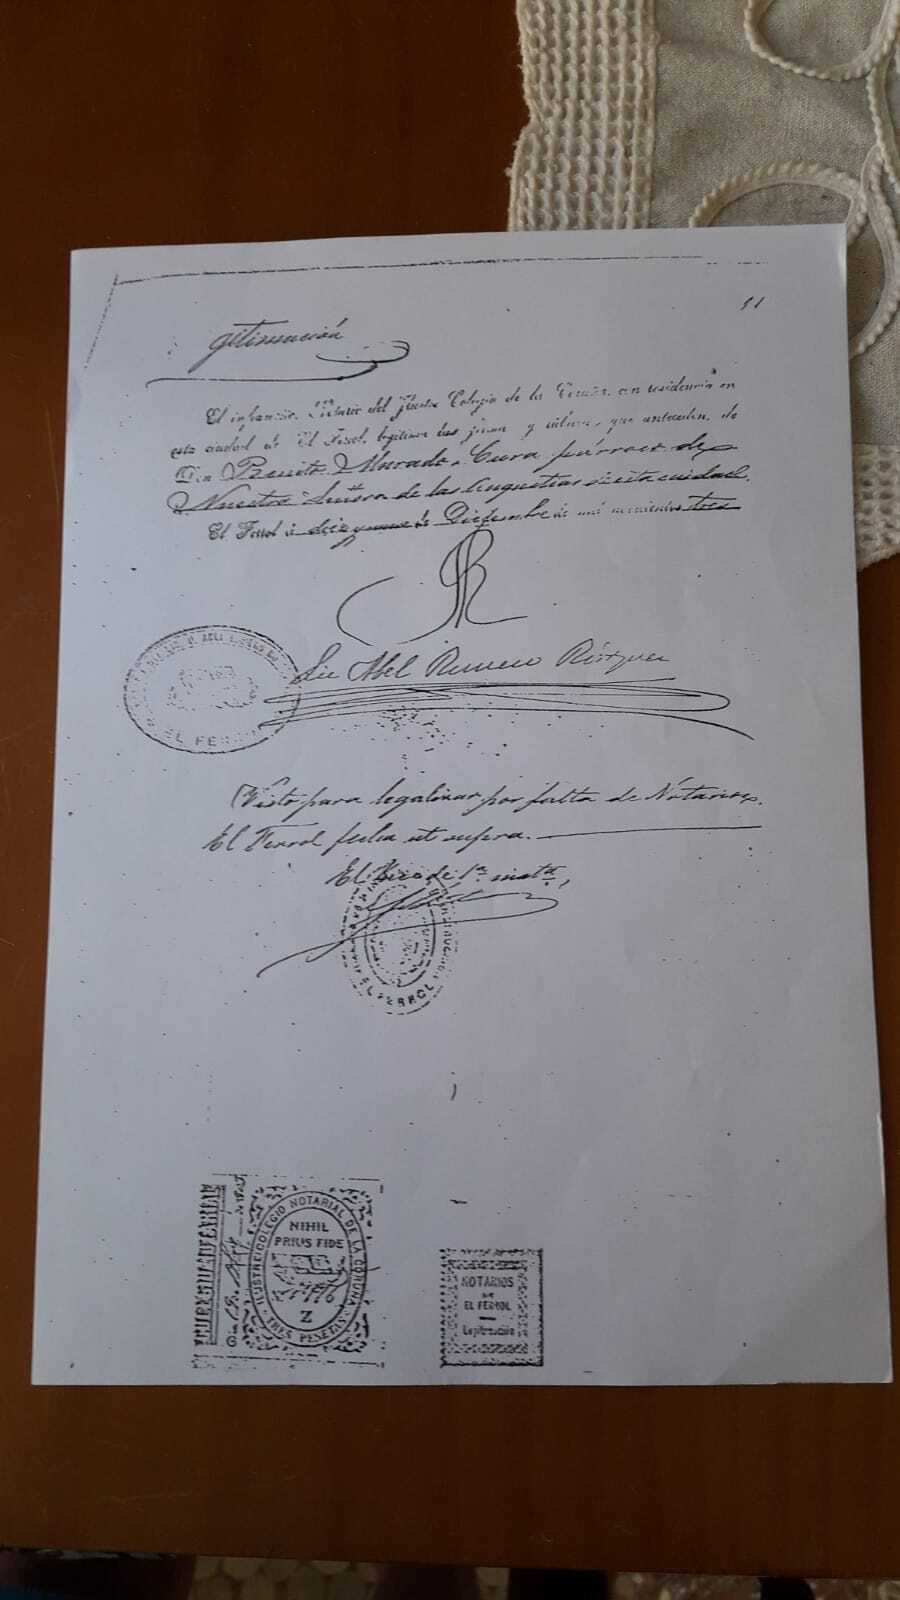 11
gitimación
El infrascrito, Notario del Ilustre Colegio de la Coruña, con residencia en
esta ciudad de El Ferrol, legitimo las firma y rúbrica, que anteceden, de
Don Benito Murado, Cura párroco de
Nuestra Señora de las Angustias de esta ciudad.
El Ferrol á diez y nueve de Diciembre de mil novecientos tres
Lic Abel Romero
EL FERROL
Visto para legalizar por falta de Notarios.
El Ferrol fecha ut supra.
El Juez de 1ª. instª.
EL FERROL
ILUSTRE COLEGIO NOTARIAL DE LA CORUÑA
NIHIL
PRIUS FIDE
Z
TRES PESETAS
NOTARIOS
DE
EL FERROL
Legitimación